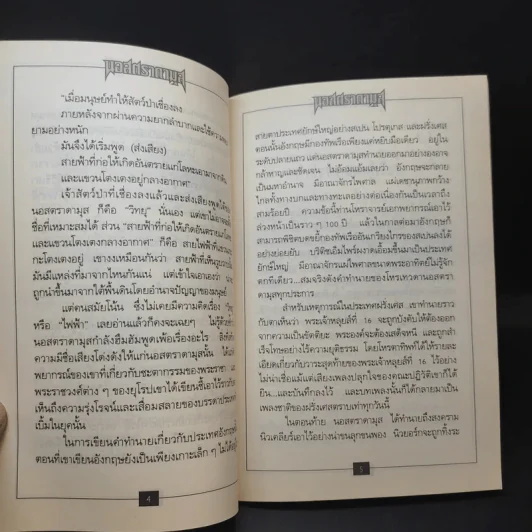 นอสตราดามุส
"เมื่อมนุษย์ทำให้สัตว์ป่าเชื่องลง
ภายหลังจากผ่านความยากลำบากและใช้ความ
ยามอย่างหนัก
มันจึงได้เริ่มพูด (ส่งเสียง)
สายฟ้าที่ก่อให้เกิดอันตรายแก่โลหะเอามาจากดิน
และแขวนโตงเตงอยู่กลางอากาศ"
เจ้าสัตว์ป่าที่เชื่องลงแล้วและส่งเสียงพูดได้
นอสตราดามุส ก็คือ "วิทยุ" นั่นเอง แต่เขาไม่อาจ
ชื่อที่เหมาะสมได้ ส่วน "สายฟ้าที่ก่อให้เกิดอันตรายแก่โลหะ
และแขวนโตงเตงกลางอากาศ" ก็คือ สายไฟฟ้าที่แขวน
กะโตงเตงอยู่ เขางงเหมือนกันว่า สายไฟฟ้าที่เห็น
มันมีแหล่งที่มาจากไหนกันแน่ แต่เข้าใจเอาเองว่า
ถูกนำขึ้นมาจากใต้พื้นดินโดยอำนาจปัญญาของมนุษย์
แต่คนสมัยโน้น ซึ่งไม่เคยมีความคิดเรื่อง "วิทยุ"
หรือ "ไฟฟ้า" เลยอ่านแล้วก็คงจะเฉยๆ ไม่รู้ด้วยซ้ำ
นอสตราดามุสกำลังฮึมฮัมพูดเพ้อเรื่องอะไร สิ่งที่
ความมีชื่อเสียงโด่งดังให้แก่นอสตราดามุสนั้น ได้แก่
พยากรณ์ของเขาที่เกี่ยวกับชะตากรรมของพระราชา
พระราชวงศ์ต่าง ๆ ของยุโรปเขาได้เขียนชี้เอาไว้ราวกับ
เห็นถึงความรุ่งโรจน์และเสื่อมสลายของบรรดาประเทศ
เบิ้มในยุคนั้น
ในการเขียนคำทำนายเกี่ยวกับประเทศอังกฤษ
ตอนที่เขาเขียนอังกฤษยังเป็นเพียงเกาะเล็ก ๆ ไม่ได้อยู่
4
นอสตราดามุส
สายตาประเทศยักษ์ใหญ่อย่างสเปน โปรตุเกส และฝรั่งเศส
ตอนนั้นอังกฤษมีกองทัพเรือเพียงแค่หยิบมือเดียว อยู่ใน
ระดับปลายแถว แต่นอสตราดามุสทำนายออกมาอย่างองอาจ
กล้าหาญและชัดเจน ไม่อ้อมแอ้มเลยว่า อังกฤษจะกลาย
เป็นมหาอำนาจ มีอาณาจักรไพศาล แผ่เดชานุภาพกว้าง
ไกลทั้งทางบกและทางทะเลอย่างต่อเนื่องกันเป็นเวลาถึง
สามร้อยปี ความข้อนี้ท่านโหราจารย์เอกพยากรณ์เอาไว้
ล่วงหน้าเป็นราว ๆ 100 ปี แล้วในกาลต่อมาอังกฤษก็
สามารถพิชิตบดขยี้กองทัพเรืออันเกรียงไกรของสเปนลงได้
อย่างย่อยยับ บริติชเอ็มไพร์ผงาดเอื้อมขึ้นมาเป็นประเทศ
ยักษ์ใหญ่ มีอาณาจักรแผ่ไพศาลขนาดพระอาทิตย์ไม่รู้จัก
ตกทีเดียว...สมจริงดังคำทำนายของโหรเทวดานอสตรา
ดามุสทุกประการ
สำหรับเหตุการณ์ในประเทศฝรั่งเศส เขาทำนายราว
กับตาเห็นว่า พระเจ้าหลุยส์ที่ 16 จะถูกบังคับให้ต้องออก
จากความเป็นขัตติยะ พระองค์จะต้องเสด็จหนี และถูกสำ
เร็จโทษอย่างไร้ความยุติธรรม โดยโหรตาทิพท์ได้ให้รายละ
เอียดเกี่ยวกับวาระสุดท้ายของพระเจ้าหลุยส์ที่ 16 ไว้อย่าง
ไม่น่าเชื่อแม้แต่เสียงเพลงปลุกใจของคณะปฏิวัติเขาก็ได้
ยิน...และบันทึกลงไว้ และบทเพลงนั้นก็ได้กลายมาเป็น
เพลงชาติของฝรั่งเศสตราบเท่าทุกวันนี้
ในตอนท้าย นอสตราดามุส ได้ทำนายถึงสงคราม
นิวเคลียร์เอาไว้อย่างน่าขนลุกขนพอง นิวยอร์กจะถูกทิ้งระ
5